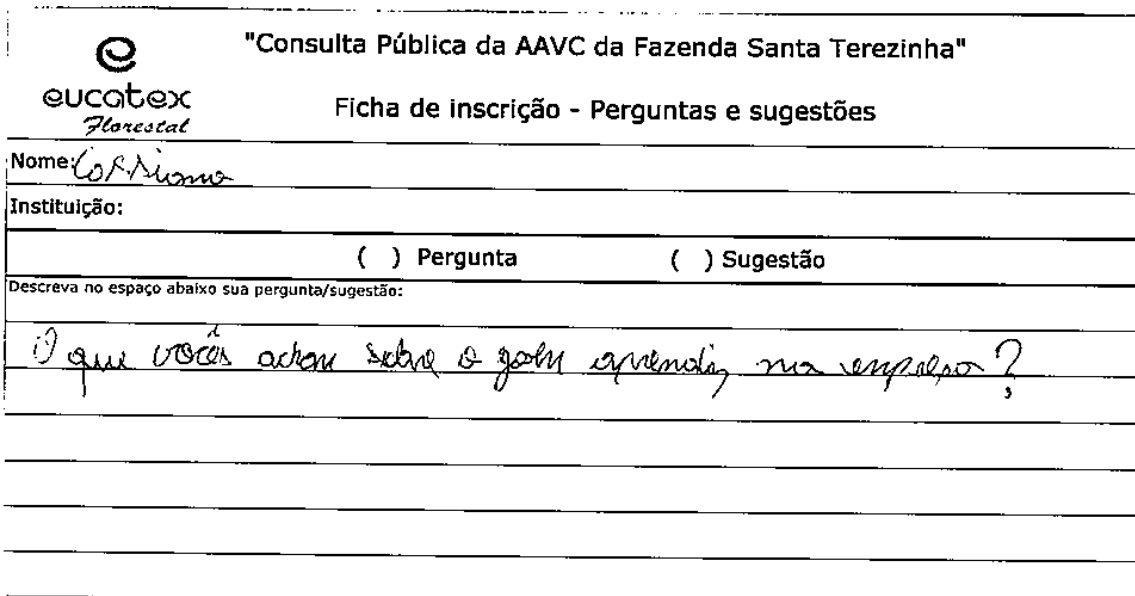 "Consulta Pública da AAVC da Fazenda Santa Terezinha"
eucatex
Florestal
Ficha de inscrição - Perguntas e sugestões
Nome:
Instituição:
( ) Pergunta ( ) Sugestão
Descreva no espaço abaixo sua pergunta/sugestão:
O que vocês acham sobre o jovem aprendiz na empresa?